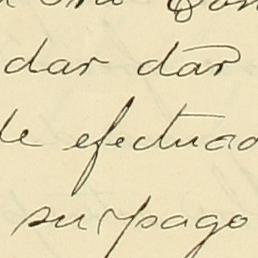 dar dar
de efectuad
su pago